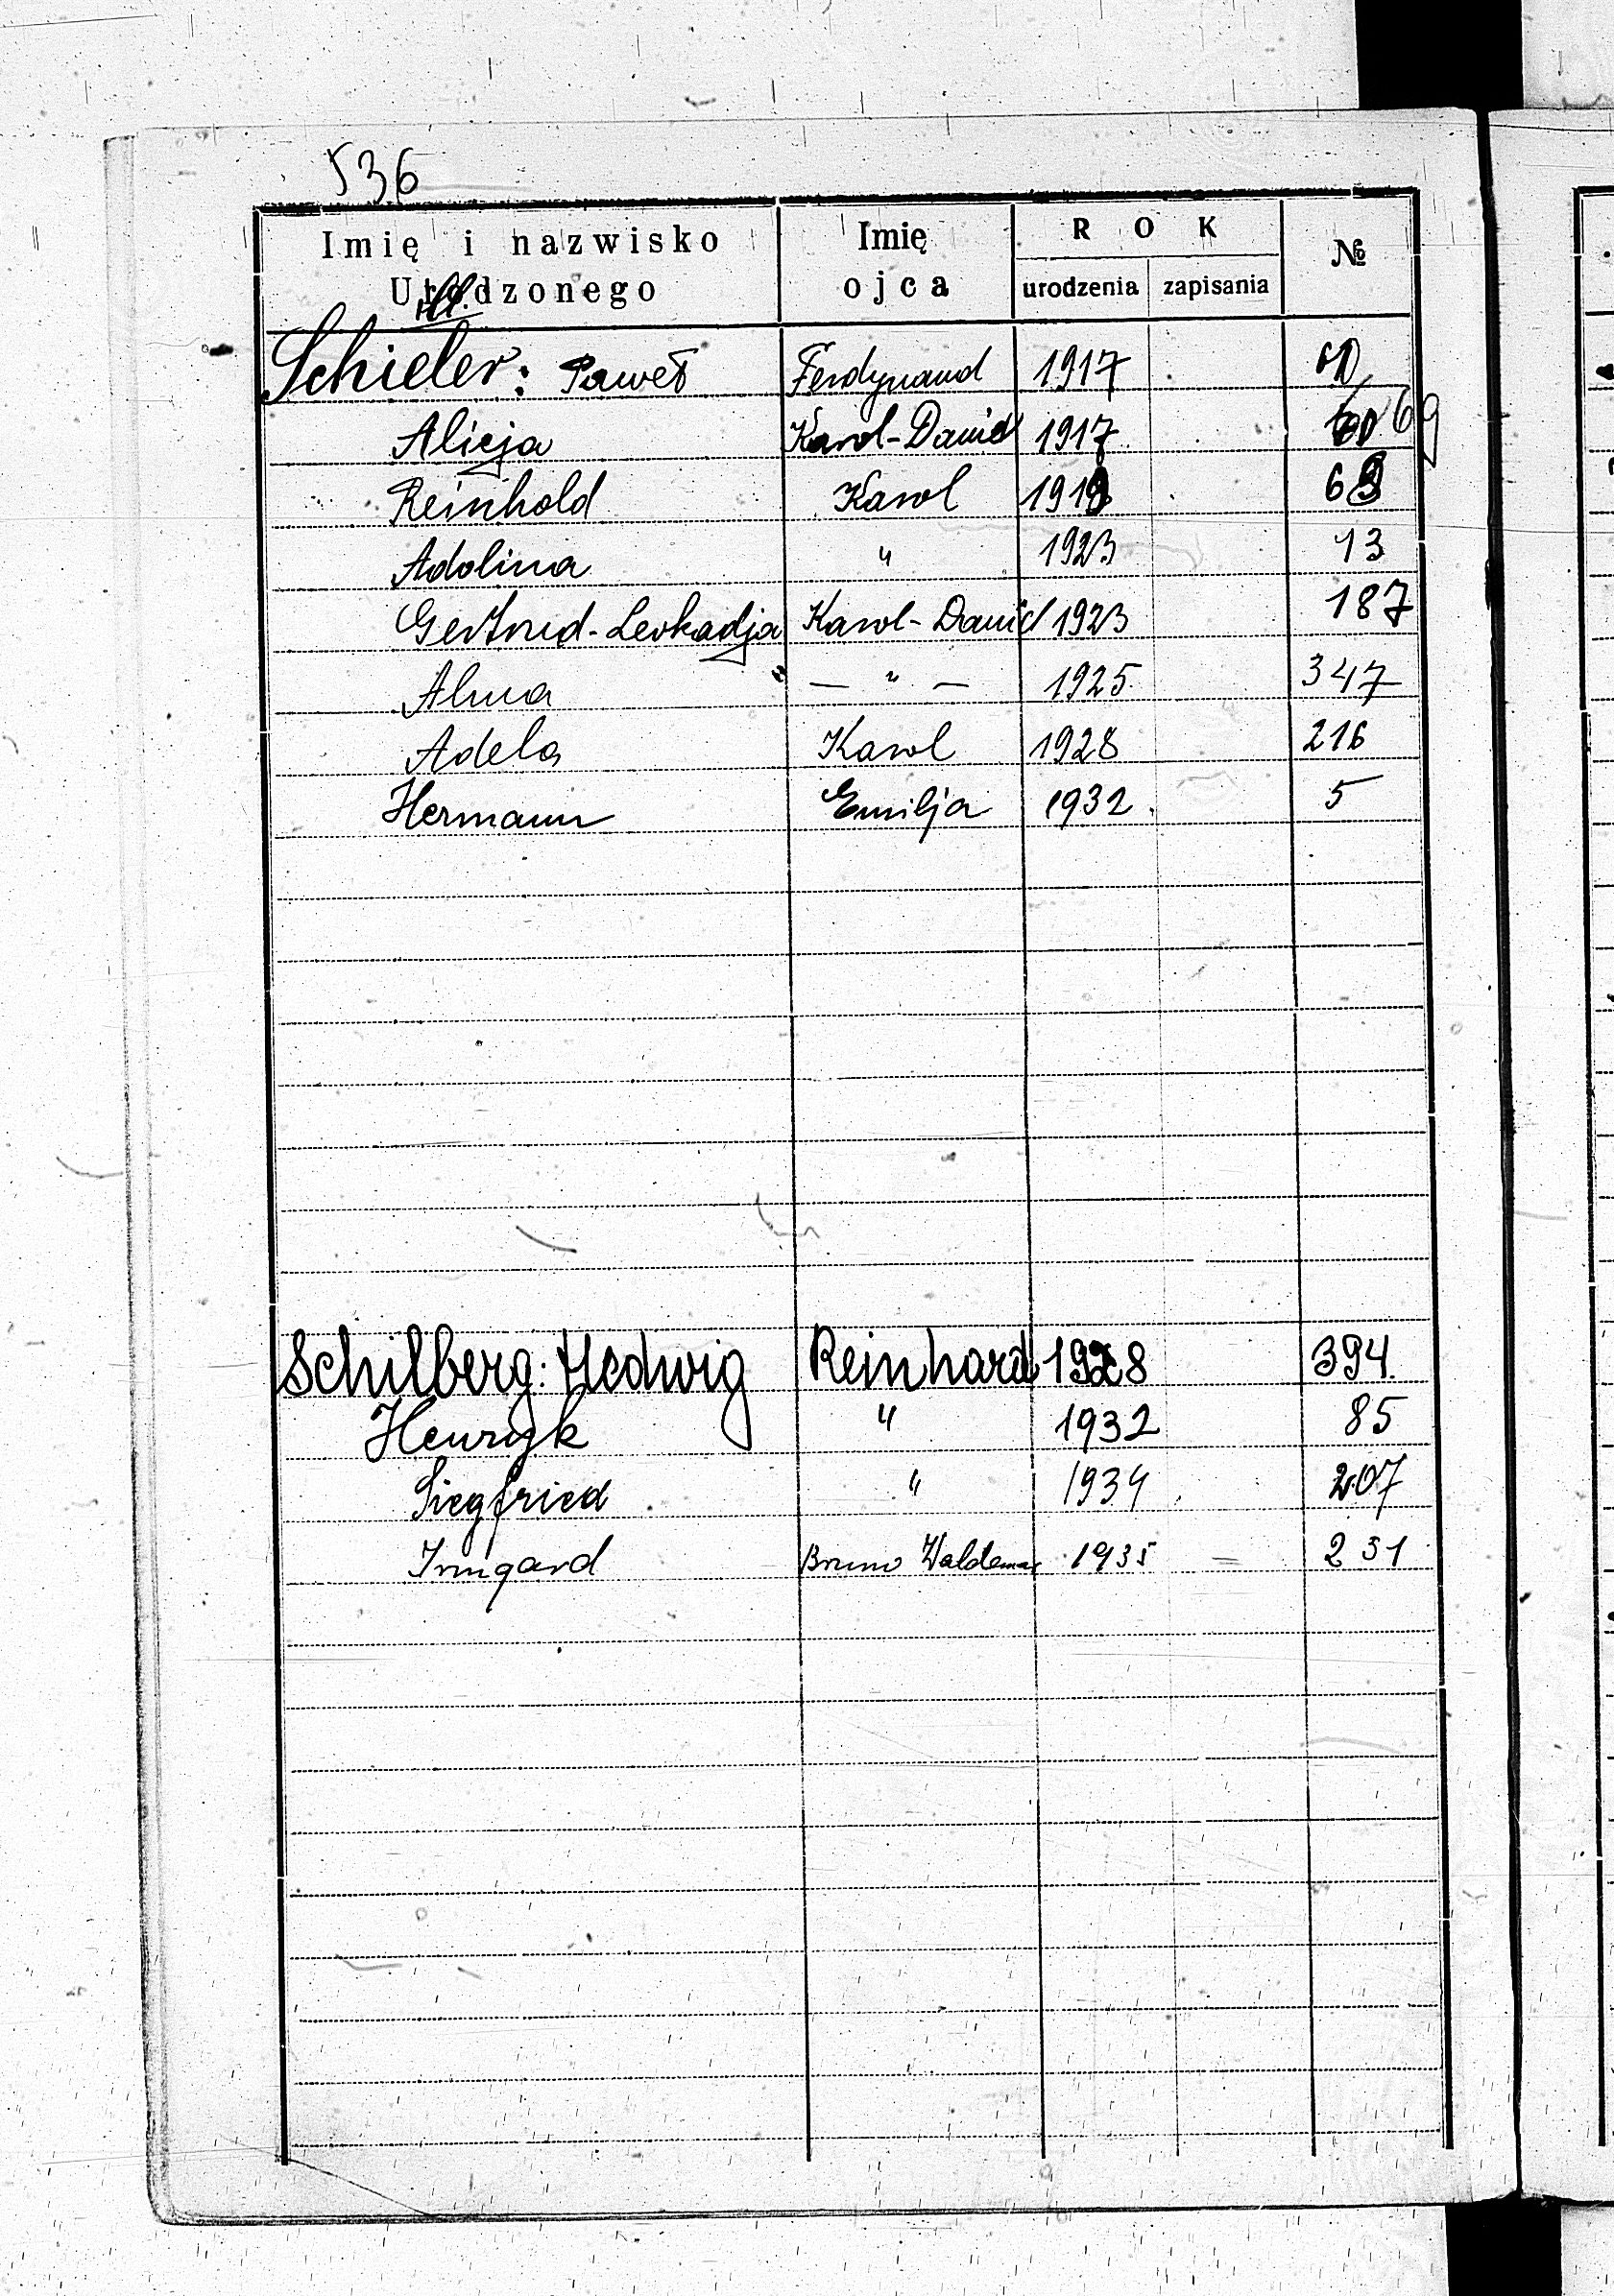 536
Imię i nazwisko Urodzonego Imię ojca ROK urodzenia zapisania №
Schieler: Paweł Ferdynand 1917
Alicja Karol-Daniel 1917 69
Reinhold Karol 1919 69
Adolina " 1923 13
Gertrud-Leokadja Karol-Daniel 1923 187
Alma — " — 1925 347
Adela Karol 1928 216
Hermann Emilja 1932. 5
Schilberg: Hedwig Reinhard 1928 394.
Henryk " 1932 85
Siegfried " 1934 207
Irmgard Bruno Waldemar 1935 = 231